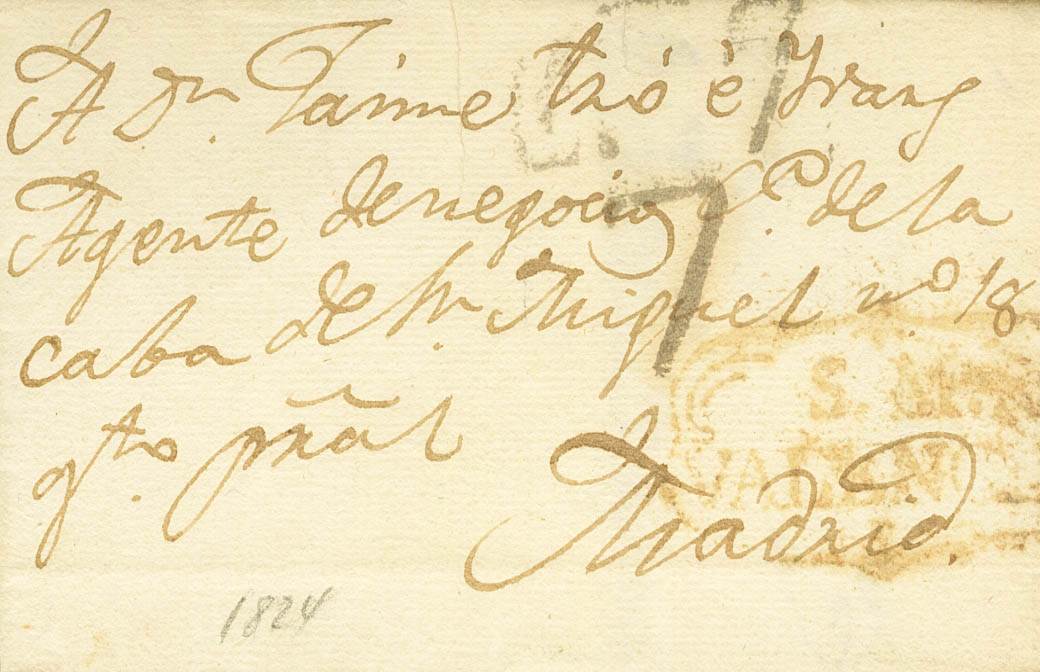 A Dn. Jaime Izó è Yranz
Agente de negocios C.P. de la
caba de Sn. Miguel n.o 18
qto. prãl
Madrid.
7
S. M.
1824